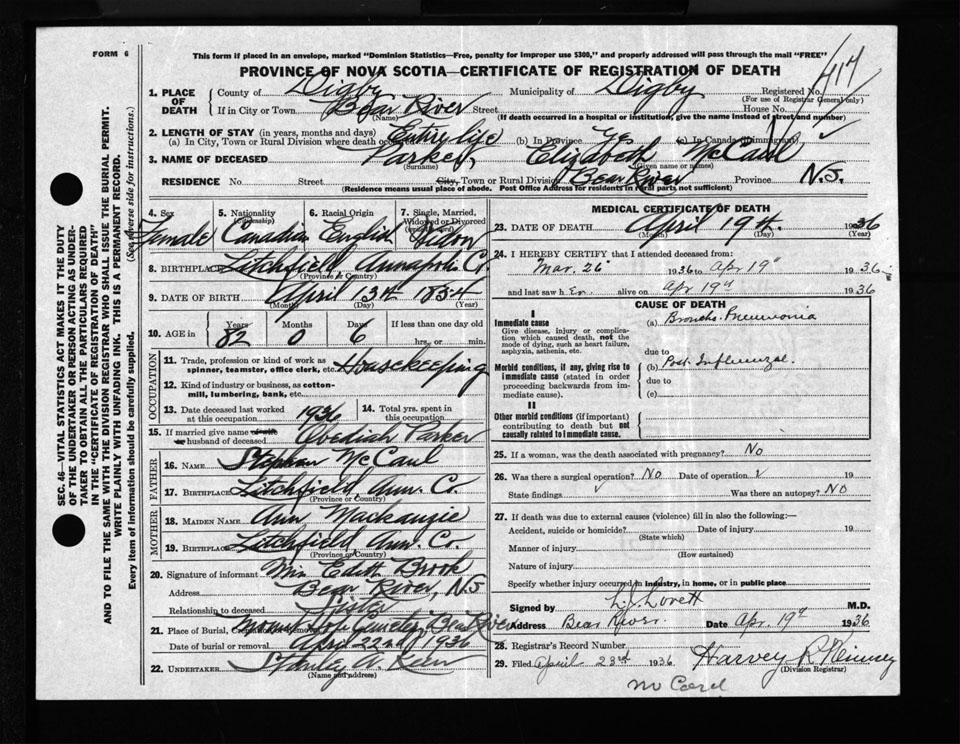 FORM 6
This form if placed in an envelope, marked "Dominion Statistics—Free, penalty for improper use $300," and properly addressed will pass through the mail "FREE"
PROVINCE OF NOVA SCOTIA—CERTIFICATE OF REGISTRATION OF DEATH
1. PLACE OF DEATH County of Digby Municipality of Digby Registered No. 417
(For use of Registrar General only)
If in City or Town Bear River Street House No.
(Name) (If death occurred in a hospital or institution, give the name instead of street and number)
2. LENGTH OF STAY (in years, months and days)
(a) In City, Town or Rural Division where death occurred Entire life (b) In Province (c) In Canada (if immigrant)
3. NAME OF DECEASED Parker, Elizabeth McCaul
(Surname) (Given name or names)
RESIDENCE No. Street City, Town or Rural Division Bear River Province N.S.
(Residence means usual place of abode. Post Office Address for residents in rural parts, not sufficient)
4. Sex Female
5. Nationality (Citizenship) Canadian
6. Racial Origin English
7. Single, Married, Widowed or Divorced Widow
8. BIRTHPLACE Litchfield Annapolis Co.
(Province or Country)
9. DATE OF BIRTH April 13th 1854
(Month) (Day) (Year)
10. AGE in Years 82 Months 0 Days 6 If less than one day old hrs., or min.
OCCUPATION
11. Trade, profession or kind of work as spinner, teamster, office clerk, etc. Housekeeping
12. Kind of industry or business, as cotton-mill, lumbering, bank, etc.
13. Date deceased last worked at this occupation 1936 14. Total yrs. spent in this occupation
15. If married give name of wife or husband of deceased Obediah Parker
FATHER
16. Name Stephen McCaul
17. Birthplace Litchfield Ann. Co.
(Province or Country)
MOTHER
18. Maiden Name Ann Mackanzie
19. Birthplace Litchfield Ann. Co.
(Province or Country)
20. Signature of informant Edith Brook
Address Bear River, N.S
Relationship to deceased Sister
21. Place of Burial, Cremation or Removal Mount Hope Cemetery Bear River
Date of burial or removal April 22nd 1936
22. UNDERTAKER Stanley A.
(Name and address)
MEDICAL CERTIFICATE OF DEATH
23. DATE OF DEATH April 19th. 1936
(Month) (Day) (Year)
24. I HEREBY CERTIFY that I attended deceased from:
Mar. 26 1936 to Apr 19th 1936
and last saw h er alive on Apr 19th 1936
CAUSE OF DEATH
I
Immediate cause (a) Broncho-Pneumonia
Give disease, injury or complication which caused death, not the mode of dying, such as heart failure, asphyxia, asthenia, etc.
due to
Morbid conditions, if any, giving rise to immediate cause (stated in order proceeding backwards from immediate cause). (b) Post Influenzal.
due to
(c)
II
Other morbid conditions (if important) contributing to death but not causally related to immediate cause.
25. If a woman, was the death associated with pregnancy? No
26. Was there a surgical operation? No Date of operation 19
State findings Was there an autopsy? No
27. If death was due to external causes (violence) fill in also the following:—
Accident, suicide or homicide? Date of injury 19
(State which)
Manner of injury
(How sustained)
Nature of injury
Specify whether injury occurred in industry, in home, or in public place
Signed by L. J. Lovett M.D.
Address Bear River Date Apr. 19th 1936
28. Registrar's Record Number
29. Filed April 23rd 1936 Harvey R
(Division Registrar)
SEC. 46—VITAL STATISTICS ACT MAKES IT THE DUTY
OF THE UNDERTAKER OR PERSON ACTING AS UNDER-
TAKER TO OBTAIN ALL THE PARTICULARS REQUIRED
IN THE "CERTIFICATE OF REGISTRATION OF DEATH"
AND TO FILE THE SAME WITH THE DIVISION REGISTRAR WHO SHALL ISSUE THE BURIAL PERMIT.
WRITE PLAINLY WITH UNFADING INK. THIS IS A PERMANENT RECORD.
Every item of information should be carefully supplied. (See reverse side for instructions.)